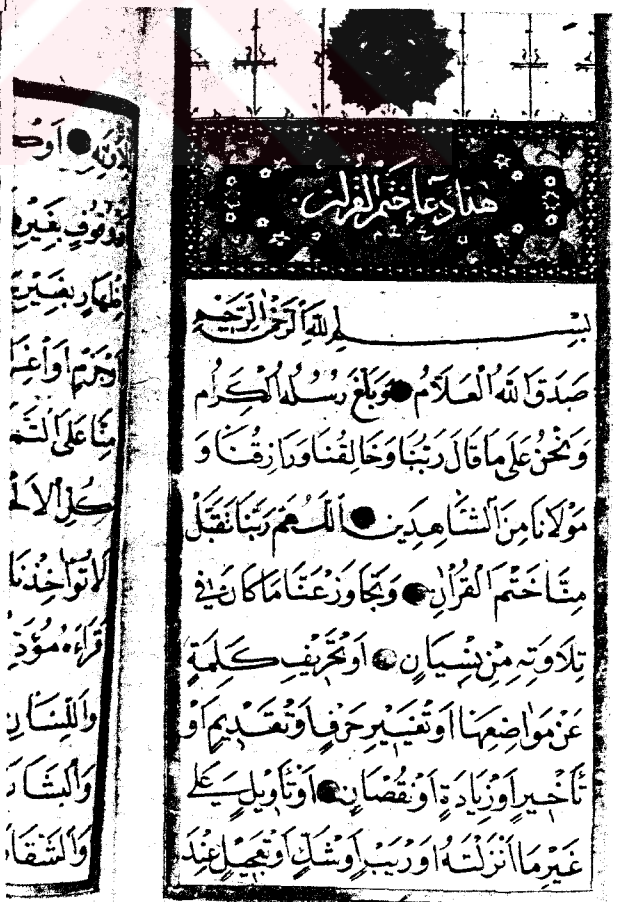 هذا دعاء ختم القرآن
بِسْمِ اللّٰهِ الرَّحْمٰنِ الرَّحِيمِ
صَدَقَ اللّٰهُ الْعَلَّامُ وَبَلَّغَ رُسُلُهُ الْكِرَامُ
وَنَحْنُ عَلَى مَا قَالَ رَبُّنَا وَخَالِقُنَا وَرَازِقُنَا وَ
مَوْلَانَا مِنَ الشَّاهِدِينَ اَللّٰهُمَّ رَبَّنَا تَقَبَّلْ
مِنَّا خَتْمَ الْقُرْاٰنِ وَتَجَاوَزْ عَنَّا مَا كَانَ فِي
تِلَاوَتِهِ مِنْ نِسْيَانٍ اَوْ تَحْرِيفِ كَلِمَةٍ
عَنْ مَوَاضِعِهَا اَوْ تَغْيِيرِ حَرْفٍ اَوْ تَقْدِيمٍ اَوْ
تَأْخِيرٍ اَوْ زِيَادَةٍ اَوْ نُقْصَانٍ اَوْ تَأْوِيلٍ عَلَى
غَيْرِ مَا اَنْزَلْتَهُ اَوْ رَيْبٍ اَوْ شَكٍّ اَوْ تَعْجِيلٍ عِنْدَ
اَوْ
وُقُوفٍ بِغَيْرِ
اِظْهَارٍ بِغَيْرِ
اَوْ جَزْمٍ اَوْ
مِنَّا عَلَى
كُلِّ
لَا تُؤَاخِذْنَا
قِرَاءَةً
وَاللِّسَانِ